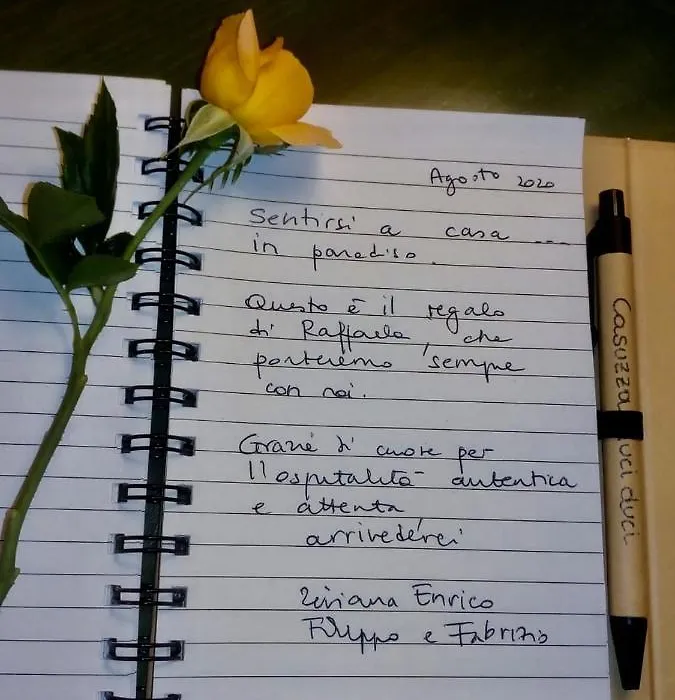 Agosto 2020
Sentirsi a casa ...
in paradiso.
Questo è il regalo
di Raffaela, che
porteremo sempre
con noi.
Grazie di cuore per
l'ospitalità autentica
e attenta
arrivederci
Enrico
Filippo e Fabrizio
Casuzza uci duci